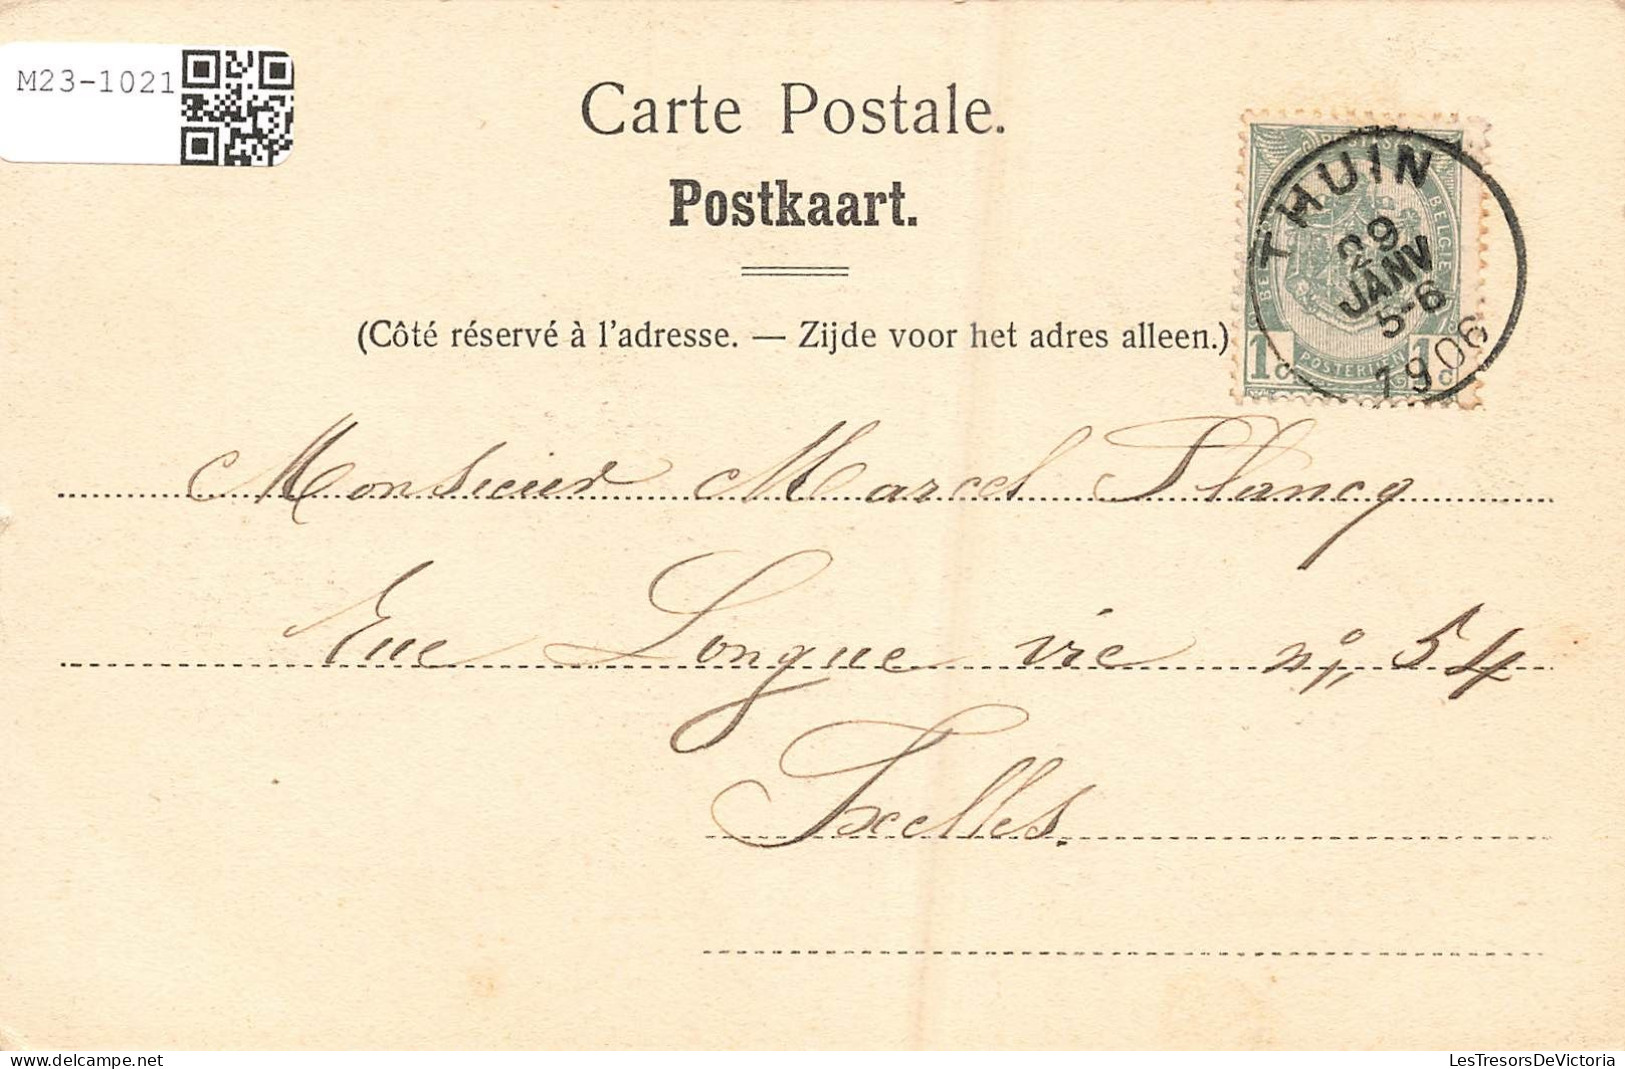 M23-1021
Carte Postale.
Postkaart.
(Côté réservé à l'adresse. — Zijde voor het adres alleen.)
BELGIE
POSTERIJEN
1c 1c
THUIN
29
JANV
5-6
1906
Monsieur Marcel Plancq
Rue Longue vie n° 54
Ixelles.
delcampe.net
LesTresorsDeVictoria